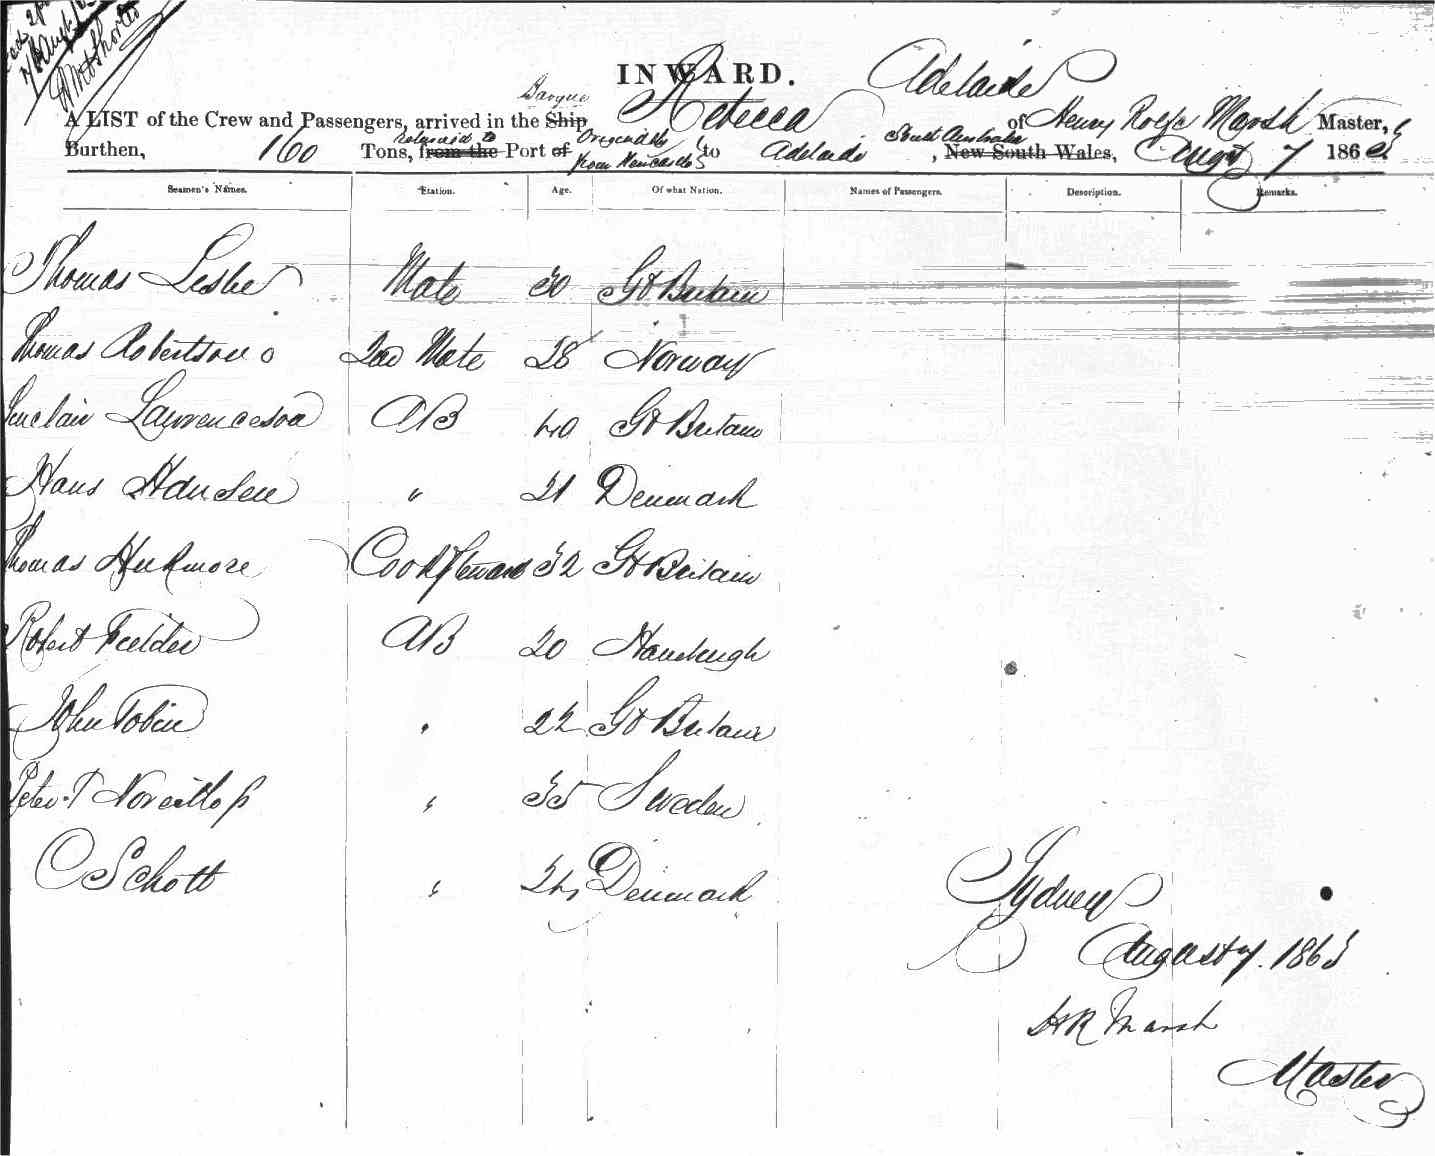 INWARD.
Barque Rebecca Adelaide
A LIST of the Crew and Passengers, arrived in the Ship of Henry Rolfe Marsh Master,
Returned to Originally South Australia
Burthen, 160 Tons, from the Port of from Newcastle to Adelaide, New South Wales, August 7 1863
Seamen's Names. Station. Age. Of what Nation. Names of Passengers. Description. Remarks.
Thomas Leslie Mate 30 Gt Britain
Thomas Robertson 2nd Mate 28 Norway
Sinclair Lawrenceson AB 40 Gt Britain
Hans Hansen " 21 Denmark
Thomas Cook & Steward 32 Gt Britain
Robert Fielder AB 20 Hamburgh
John Tobin " 22 Gt Britain
Peter T " 35 Sweden
C Schott " Denmark
Sydney
August 7. 1863
HR Marsh
Master